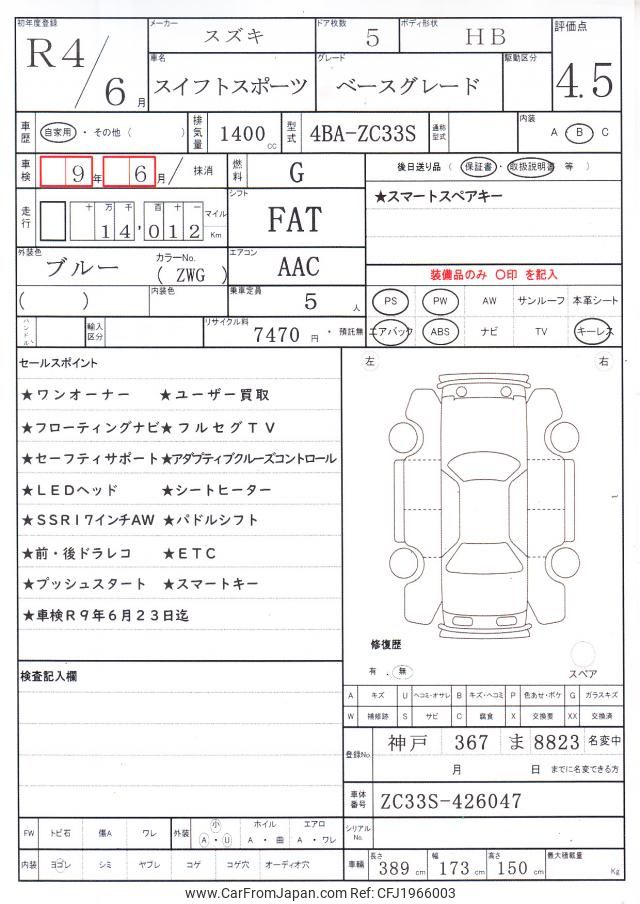 初年度登録 メーカー スズキ ドア枚数 5 ボディ形状 HB 評価点
R4/6月 車名 スイフトスポーツ グレード ベースグレード 駆動区分 4.5
車歴 自家用 ・ その他 ( ) 排気量 1400 cc 型式 4BA-ZC33S 通称型式 内装 A ・ B ・ C
車検 9年 6月 / 抹消 燃料 G 後日送り品 ( 保証書 ・ 取扱説明書 等 )
走行 十 万 千 百 十 一 マイル シフト ★スマートスペアキー
14,012 Km FAT
外装色 ブルー カラーNo. ( ZWG ) エアコン AAC 装備品のみ 〇印 を記入
( ) 内装色 乗車定員 5 人 PS PW AW サンルーフ 本革シート
ハンドル 輸入区分 リサイクル料 7470 円 ・ 預託無 エアバック ABS ナビ TV キーレス
セールスポイント 左 右
★ワンオーナー ★ユーザー買取
★フローティングナビ★フルセグTV
★セーフティサポート★アダプティブクルーズコントロール
★LEDヘッド ★シートヒーター
★SSR17インチAW ★パドルシフト
★前・後ドラレコ ★ETC
★プッシュスタート ★スマートキー
★車検R9年6月23日迄
修復歴
有 . 無 スペア
検査記入欄
A キズ U ヘコミ・オサレ B キズ・ヘコミ P 色あせ・ボケ G ガラスキズ
W 補修跡 S サビ C 腐食 X 交換要 XX 交換済
登録No. 神戸 367 ま 8823 名変中
月 日 までに名変できる方
車体番号 ZC33S-426047
シリアルNo.
FW トビ石 傷A ワレ 外装 小 A ・ U ホイル A ・ 曲 エアロ A ・ ワレ
内装 ヨゴレ シミ ヤブレ コゲ コゲ穴 オーディオ穴 車輌 長さ 389 cm 幅 173 cm 高さ 150 cm 最大積載量 Kg
www.CarFromJapan.com Ref: CFJ1966003